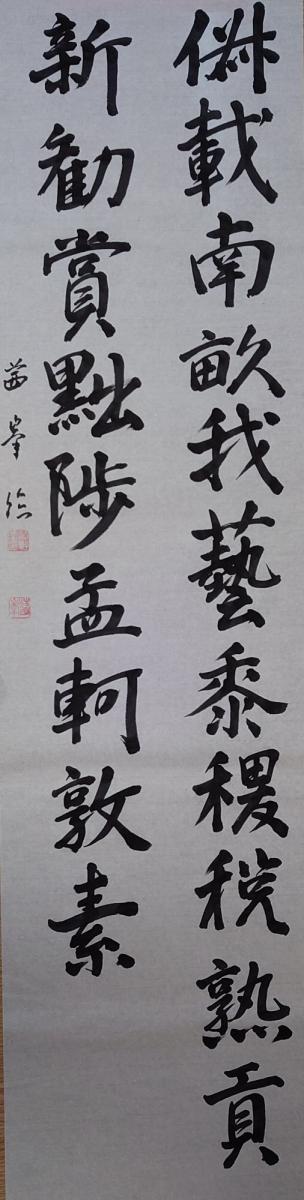 俶載南畝我藝黍稷税熟貢
新勸賞黜陟孟軻敦素